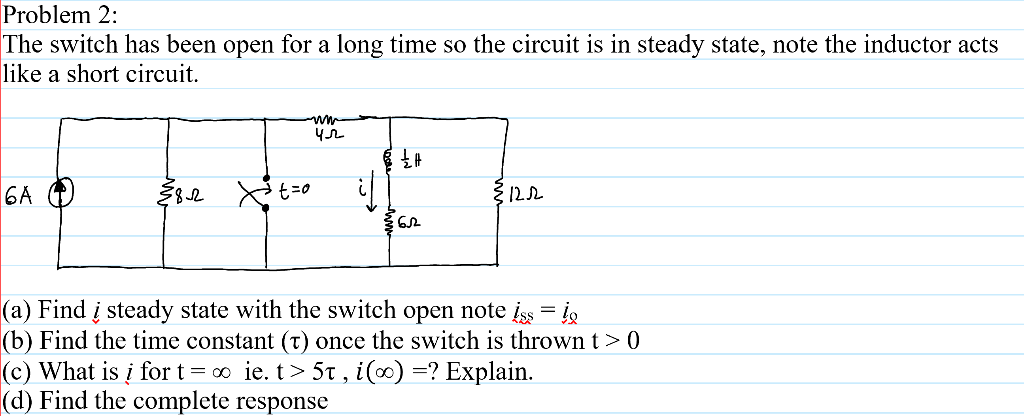 Problem 2:
The switch has been open for a long time so the circuit is in steady state, note the inductor acts
like a short circuit.
4Ω
½H
6A
8Ω
t=0
i
12Ω
6Ω
(a) Find i steady state with the switch open note iss = io
(b) Find the time constant (τ) once the switch is thrown t > 0
(c) What is i for t = ∞ ie. t > 5τ , i(∞) =? Explain.
(d) Find the complete response